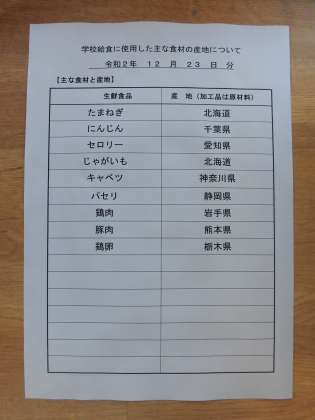 学校給食に使用した主な食材の産地について
令和2年 12 月 23 日 分
【主な食材と産地】
生鮮食品 産 地（加工品は原材料）
たまねぎ 北海道
にんじん 千葉県
セロリー 愛知県
じゃがいも 北海道
キャベツ 神奈川県
パセリ 静岡県
鶏肉 岩手県
豚肉 熊本県
鶏卵 栃木県